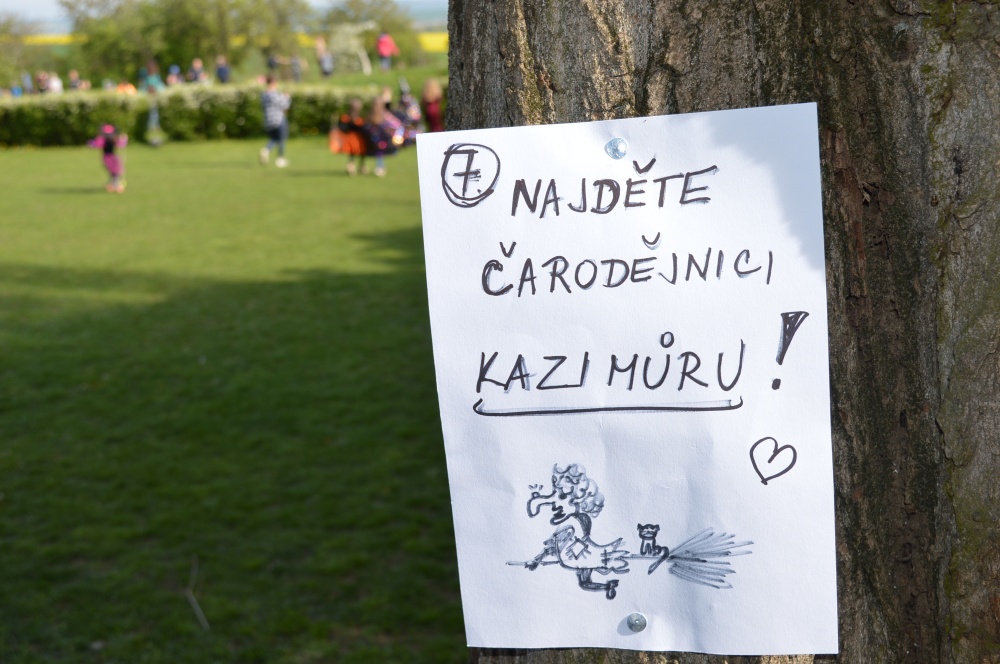 7. NAJDĚTE
ČARODĚJNICI
KAZI MŮRU!